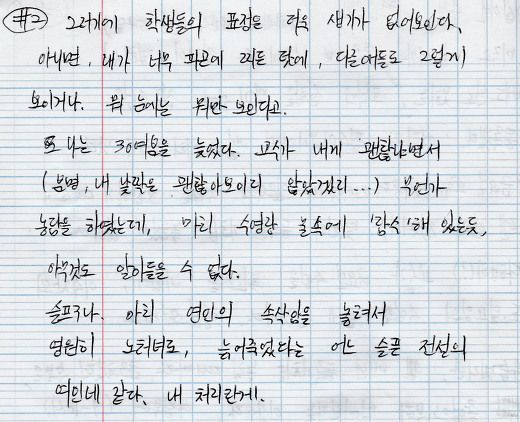 #2 그러기에 학생들의 표정은 더욱 생기가 없어보인다.
아니면, 내가 너무 피곤에 찌든 탓에, 다들 그렇게
보이거나. 뭐 눈에는 뭐만 보인다고.
또 나는 30여분을 늦었다. 교수가 내게 괜찮냐면서
(분명, 내 낯짝은 괜찮아보이지 않았겠지...) 무언가
농담을 하였는데, 마치 수영장 물속에 '잠수'해 있는듯,
아무것도 알아들을 수 없다.
슬프구나. 마치 연인의 속삭임을 놓쳐서
영원히 노처녀로, 늙어죽었다는 어느 슬픈 전설의
여인네 같다. 내 처지란게.